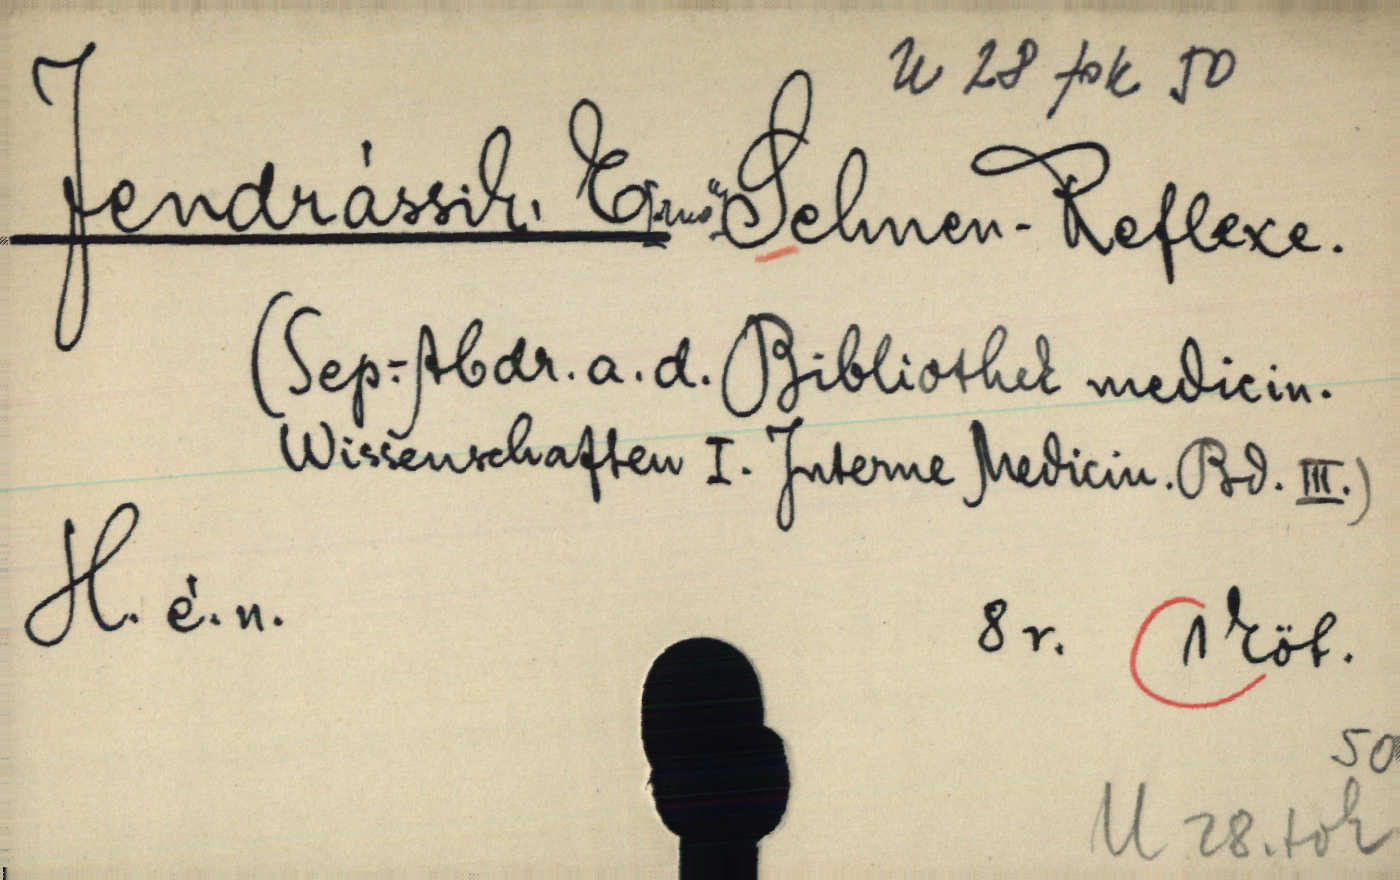 U 28 tok 50
Jendrássik, Ernő Sehnen-Reflexe.
(Sep.-Abdr. a. d. Bibliothek medicin.
Wissenschaften I. Interne Medicin. Bd. III.)
H. é. n.
8 r. 1 köt.
50
U 28. tok